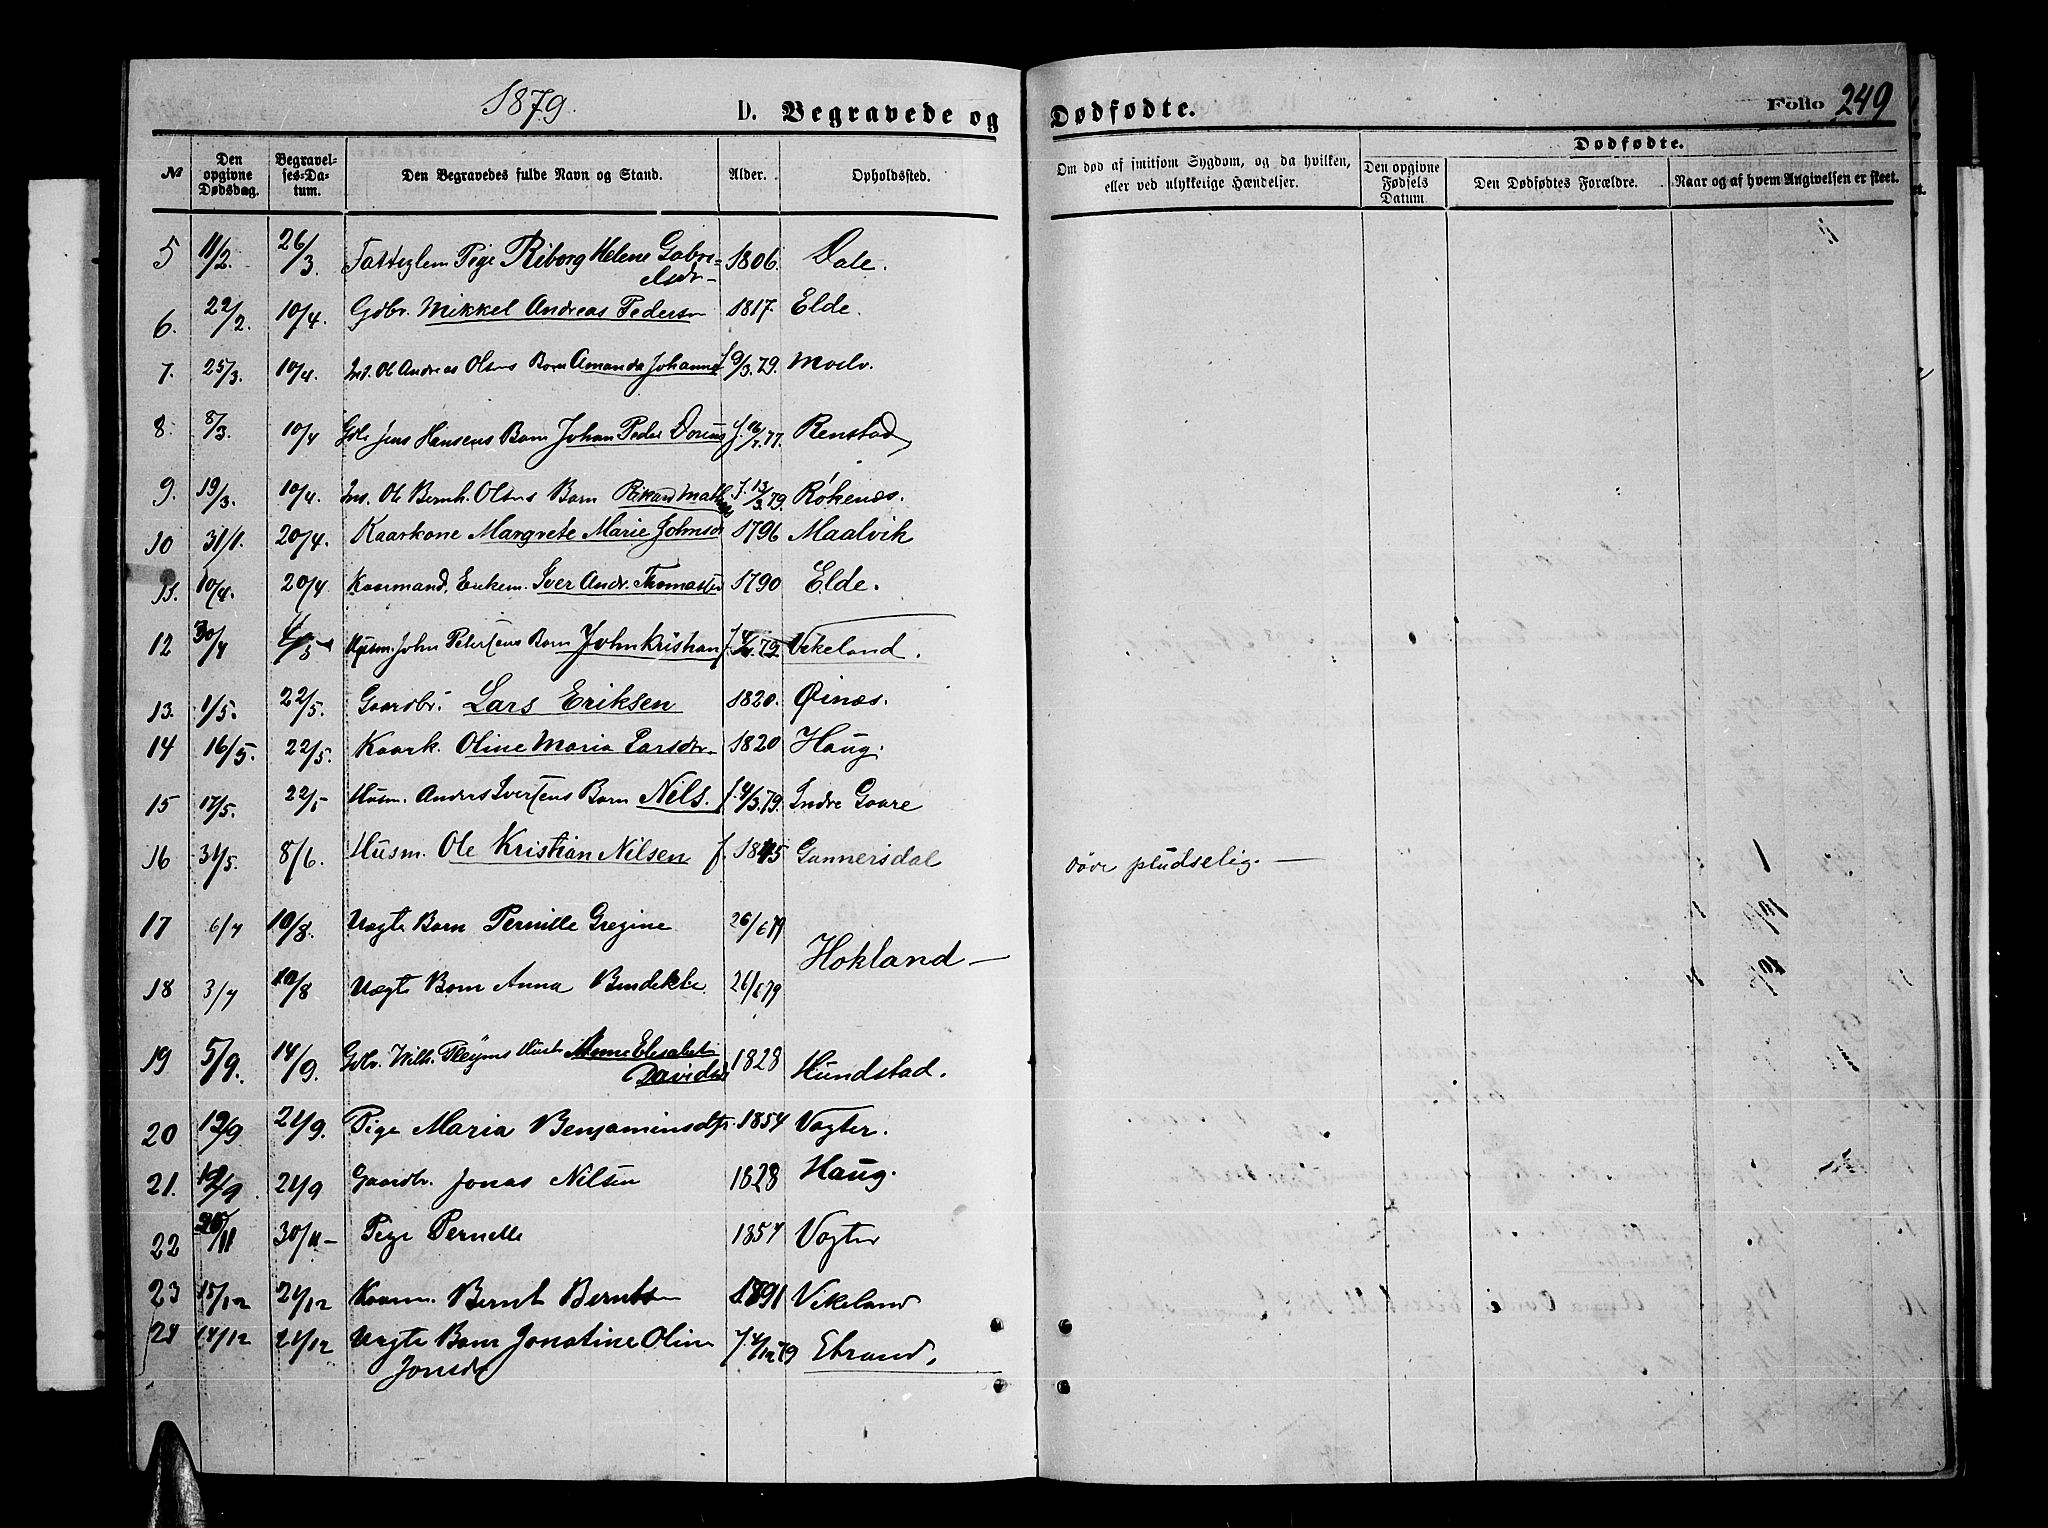 1879.
D. Begravede og Dødfødte.
Folio 249
№ Den opgivne Dødsdag. Begravelses-Datum. Den Begravedes fulde Navn og Stand. Alder. Opholdssted. Om død af smitsom Sygdom, og da hvilken, eller ved ulykkelige Hændelser. Dødfødte.
Den opgivne Fødsels Datum. Den Dødfødtes Forældre. Naar og af hvem Angivelsen er skeet.
5 11/2. 26/3. Fattiglem Pige Riborg Helene Gabrielsdr 1806. Dale.
6. 22/2. 10/4. Gdbr. Mikkel Andreas Pedersen 1817. Elde.
7. 25/3. 10/4. Ins. Ole Andreas Olsens Barn Amanda Johanne f 9/3.79. Molv.
8. 8/3. 10/4 Gdbr Jens Hansens Barn Johan Peder Dorius f. 16/7.77. Renstad
9. 19/3. 10/4. Ins. Ole Bernh. Olsens Barn Rikard f. 13/3.79. Røkenes.
10 31/1. 20/4. Kaarkone Margrete Marie Johnsdr 1796 Maalvik
11. 10/4. 20/4 Kaarmand, Enkem. Iver Andr. Thomassen 1790 Elde.
12 30/4 /5 Husm. John Petersens Barn John Kristian f. 79 Vikeland.
13. 1/5. 22/5. Gaardbr. Lars Eriksen 1820. Øinæs.
14 16/5. 22/5. Kaark. Oline Maria Larsdr. 1820 Haug.
15 17/5. 22/5 Husm. Anders Ivertsens Barn Nels. f. 4/3.79. Indre Gaare
16 31/5. 8/6. Husm. Ole Kristian Nilsen f. 1845 Gunnersdal døde pludselig.
17 6/7 10/8. Uægte Barn Pernille Gregine 26/6 79
Hokland
18 3/7 10/8 Uægte Barn Anna Bendikte 26/6 79
19 5/9. 14/9. Gdbr. Wilh. Pleyms Hust. Anne Elisabet Davidsdr 1828 Hundstad.
20 12/9 21/9. Pige Maria Benjaminsdtr. 1854 Vogter.
21. 12/9. 21/9 Gaardbr. Jonas Nilsen 1828 Haug.
22 /11 30/11 Pige Pernille 1854 Vogter
23 15/12 21/12 Kaarm. Bernt Berntsen 1791 Vikeland
24 14/12 21/12 Uægte Barn Jonatine Oline Jonsdr f. 4/12 79 Elvrand.